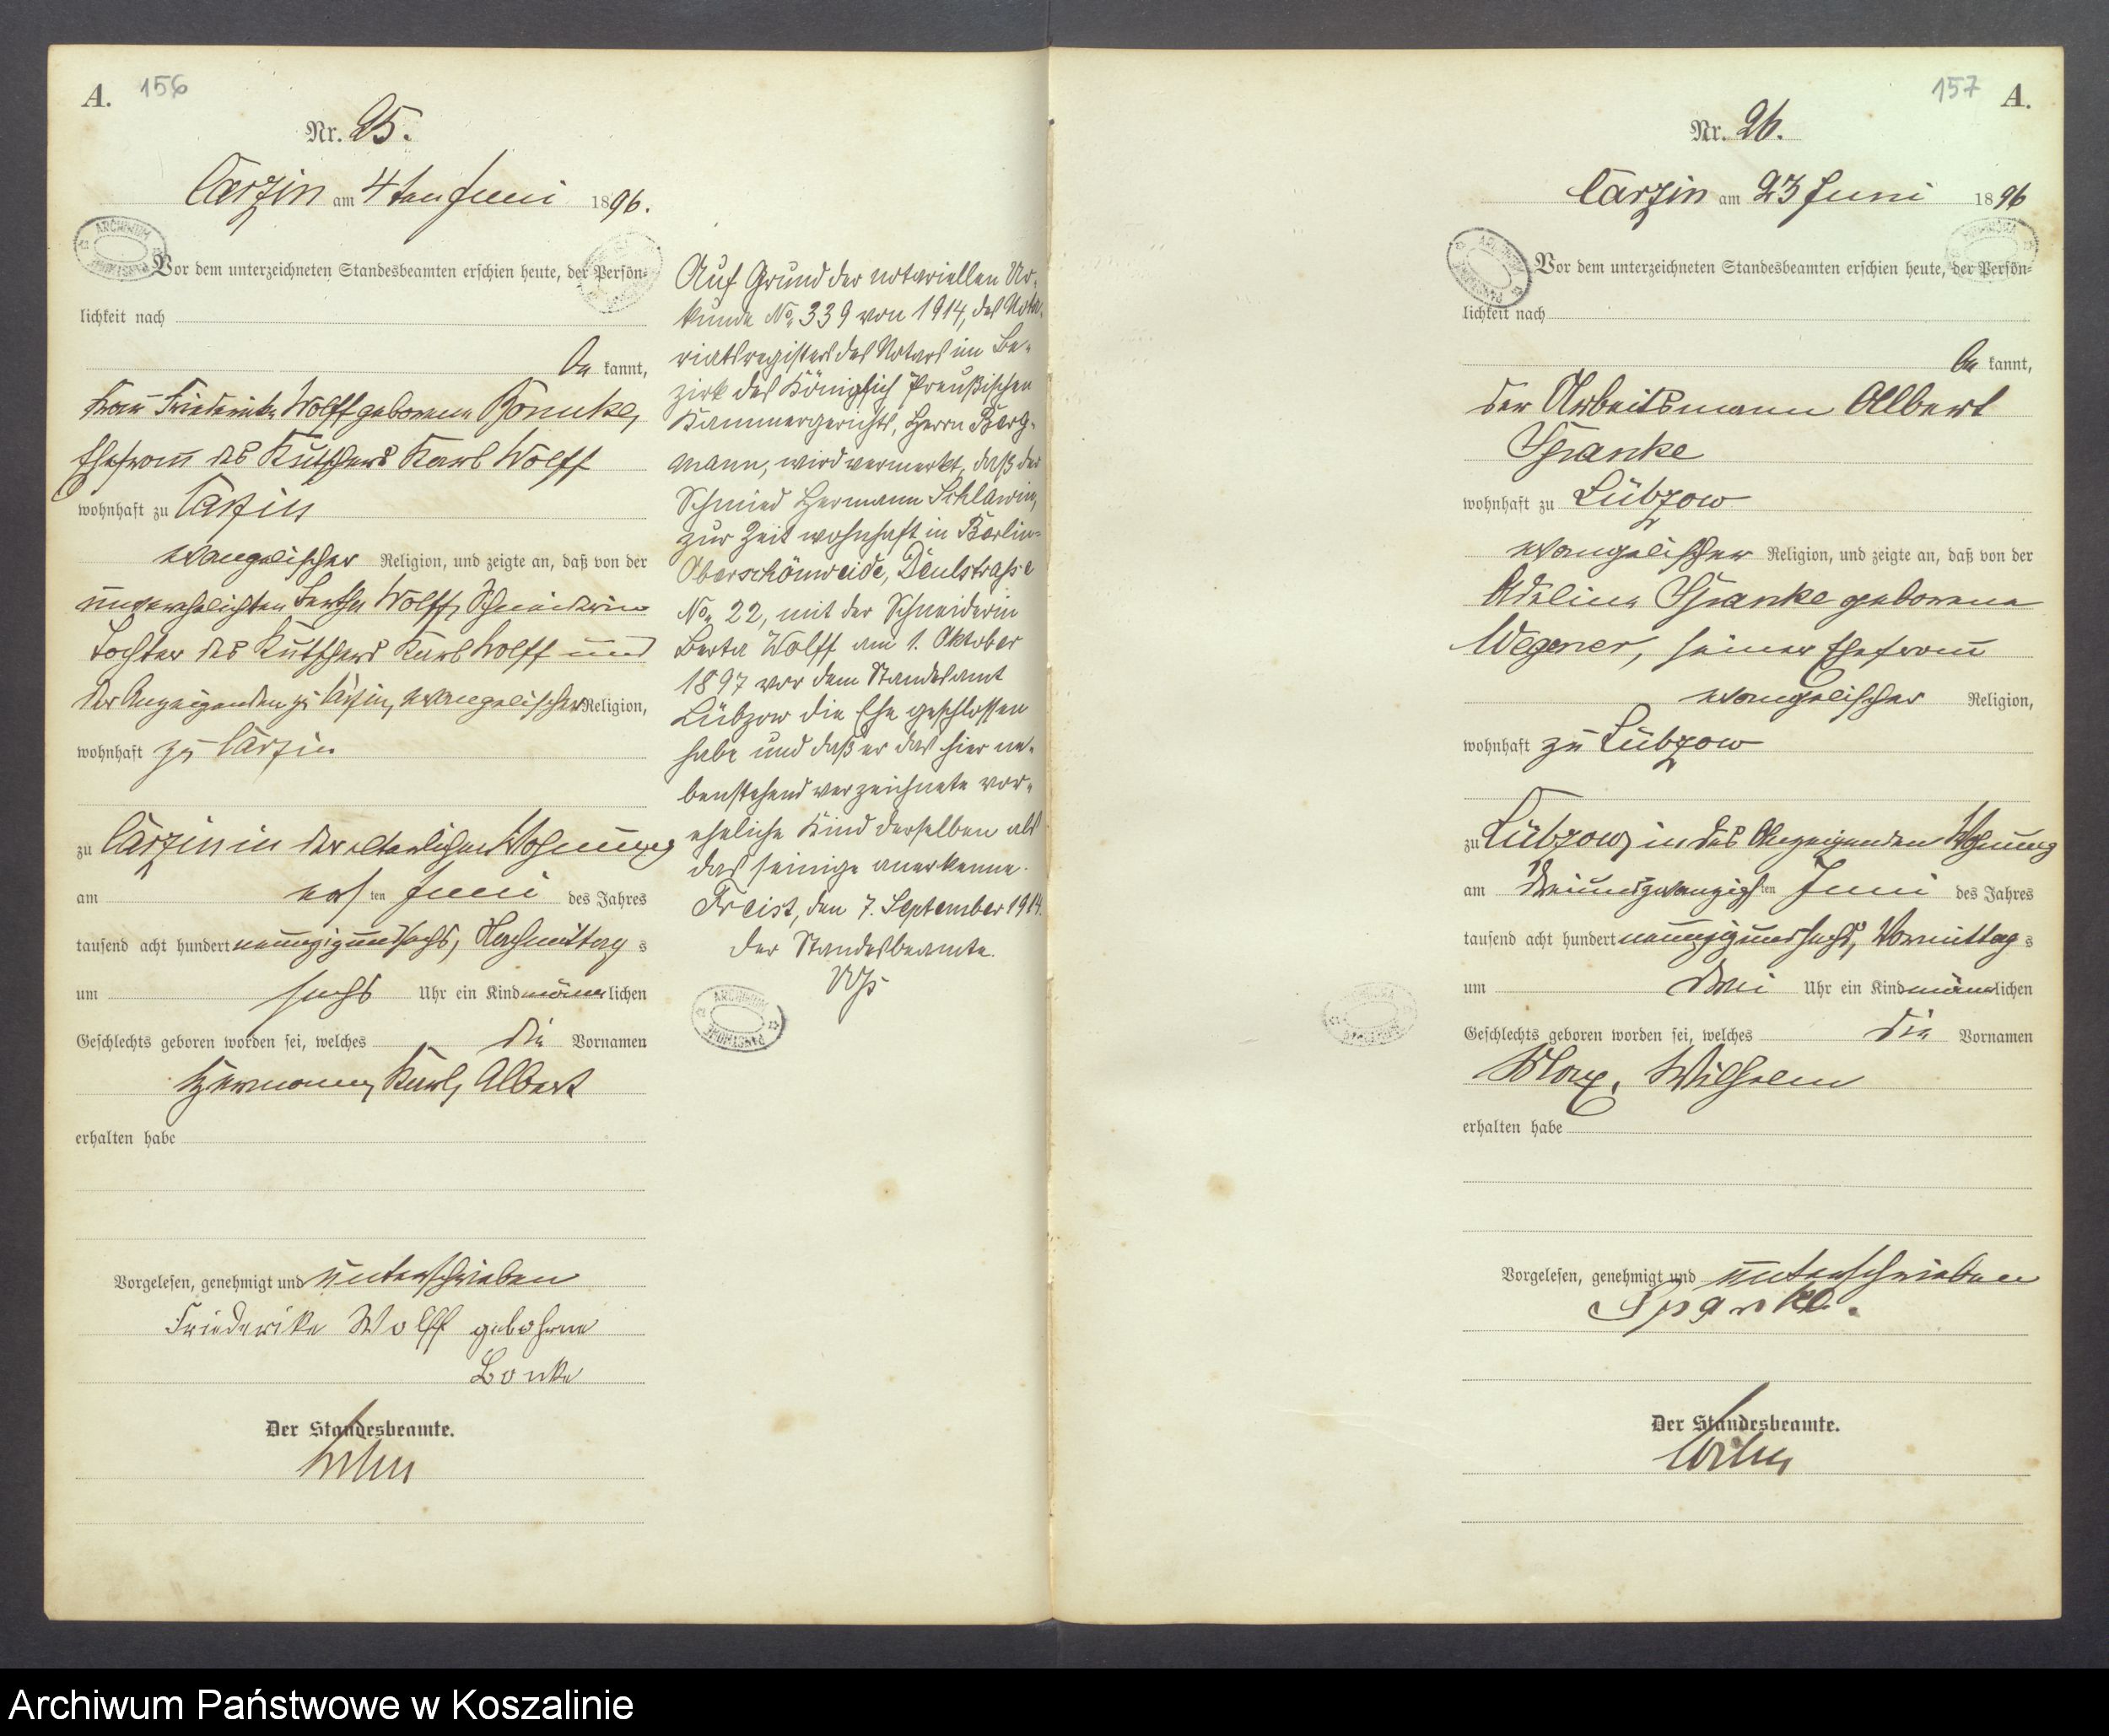 A. 156
Nr. 25.
Carzin am 4ten Juni 1896.
Vor dem unterzeichneten Standesbeamten erschien heute, der Persön-
lichkeit nach
be kannt,
Frau Friederike Wolff geborene Bönnke,
Ehefrau des Kutschers Karl Wolff
wohnhaft zu Carzin
evangelischer Religion, und zeigte an, daß von der
unverehelichten Bertha Wolff, Schneiderin
Tochter des Kutschers Karl Wolff und
der Anzeigenden zu Carzin, evangelischer Religion,
wohnhaft zu Carzin
zu Carzin in der elterlichen Wohnung
am ersten Juni des Jahres
tausend acht hundert neunzig und sechs, Nachmittags
um sechs Uhr ein Kind männlichen
Geschlechts geboren worden sei, welches die Vornamen
Hermann, Karl, Albert
erhalten habe
Vorgelesen, genehmigt und unterschrieben
Friederike Wolff gebohrne
Bonke
Der Standesbeamte.
Auf Grund der notariellen Ur-
kunde No. 339 von 1914, des Nota-
riatsregisters des Notars im Be-
zirk des Königlich Preußischen
Kammergerichts, Herrn Berg-
mann, wird vermerkt, daß der
Schmied Hermann Schlawin,
zur Zeit wohnhaft in Berlin-
Oberschönweide, Deulstraße
No. 22, mit der Schneiderin
Berta Wolff am 1. Oktober
1897 vor dem Standesamt
Lübzow die Ehe geschlossen
habe und daß er das hier ne-
benstehend verzeichnete vor-
eheliche Kind derselben als
das seinige anerkenne.
Freist, den 7. September 1914.
Der Standesbeamte.
ARCHIWUM
157 A.
Nr. 26.
Carzin am 23 Juni 1896
Vor dem unterzeichneten Standesbeamten erschien heute, der Persön-
lichkeit nach
be kannt,
der Arbeitsmann Albert
Spanke
wohnhaft zu Lübzow
evangelischer Religion, und zeigte an, daß von der
Adeline Spanke geborene
Wegener, seiner Ehefrau
evangelischer Religion,
wohnhaft zu Lübzow
zu Lübzow, in des Anzeigenden Wohnung
am dreiundzwanzigsten Juni des Jahres
tausend acht hundert neunzig und sechs, Vormittags
um drei Uhr ein Kind männlichen
Geschlechts geboren worden sei, welches die Vornamen
Max, Wilhelm
erhalten habe
Vorgelesen, genehmigt und unterschrieben
Spanke.
Der Standesbeamte.
Archiwum Państwowe w Koszalinie